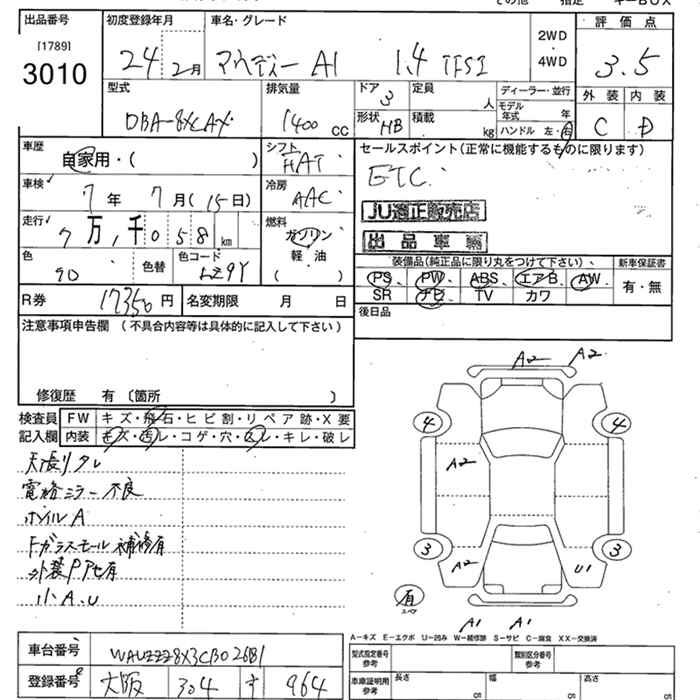 出品番号 初度登録年月 車名・グレード 2WD・4WD 評価点
[1789]
3010 24年 2月 アウディー A1 1.4 TFSI 3.5
型式 排気量 ドア 3 定員 人 ディーラー・並行 外装 内装
DBA-8XCAX 1400cc 形状 HB 積載 kg モデル年式 年 C D
ハンドル 左・右
車歴 シフト セールスポイント(正常に機能するものに限ります)
自家用・( ) FAT ETC
車検 7年 7月(15日) 冷房 AAC JU適正販売店
走行 7万,千058km 燃料 ガソリン 出品車輌
軽・油
( )
色 色替 色コード 装備品(純正品に限り丸をつけて下さい)、 新車保証書
90 LZ9Y PS、PW、ABS、エアB、AW、 有・無
SR ナビ TV カワ
R券 17350円 名変期限 月 日 後日品
注意事項申告欄(不具合内容等は具体的に記入して下さい)
修復歴 有〔箇所 〕
検査員 FW キズ・飛石・ヒビ割・リペア跡・X要
記入欄 内装 キズ・汚レ・コゲ・穴・スレ・キレ・破レ
天張りタレ
電格ミラー不良
ホイルA
Fガラスモール補修有
外装PP色有
小A.U
A2 A2
4 4
A2
3 3
A2 U1
有
スペア
A1 A1
A-キズ E-エクボ U-凹み W-補修跡 S-サビ C-腐食 XX-交換済
車台番号 WAUZZZ8X3CB026B1 型式指定番号 参考 類別区分番号 参考
登録番号 大阪 304 す 964 車庫証明用 参考 長さ 幅 高さ